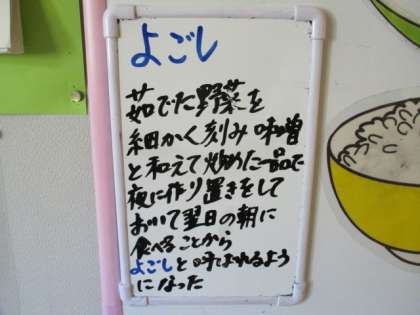 よごし
茹でた野菜を
細かく刻み味噌
と和えて炒めた一品で
夜に作り置きをして
おいて翌日の朝に
食べることから
よごしと呼ばれるよう
になった